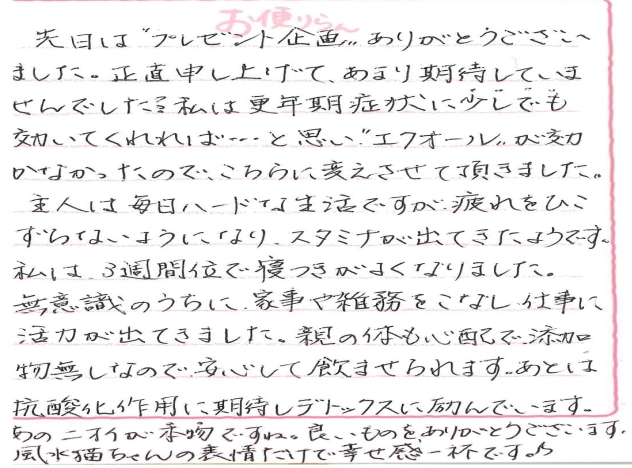 お便りらん
先日は〝プレゼント企画〟ありがとうござい
ました。正直申し上げて、あまり期待していま
せんでした。私は更年期症状に少しでも
効いてくれれば……と思い〝エクオール〟が効
かなかったので、こちらに変えさせて頂きました。
主人は毎日ハードな生活ですが、疲れをひこ
ずらないようになり、スタミナが出てきたようです。
私は、3週間位で寝つきがよくなりました。
無意識のうちに、家事や雑務をこなし、仕事に
活力が出てきました。親の体も心配で、添加
物無しなので、安心して飲ませられます。あとは
抗酸化作用に期待しデトックスに励んでいます。
あのニオイが本物ですね。良いものを、ありがとうございます。
風水猫ちゃんの表情だけで幸せ感一杯です♪